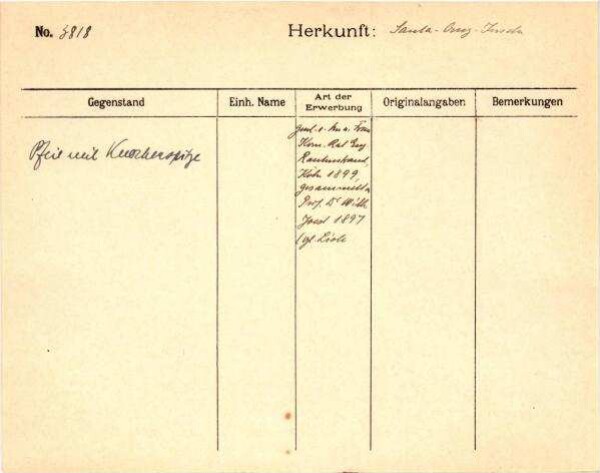 No. 3818
Herkunft: Santa-Cruz-Inseln
Gegenstand
Einh. Name
Art der
Erwerbung
Originalangaben
Bemerkungen
Pfeil mit Knochenspitze
Frau
Kom. Rat Eug
Rautenstrauch,
Köln 1899,
gesammelt v.
Prof. Dr Wilh.
Joest 1897
Liste